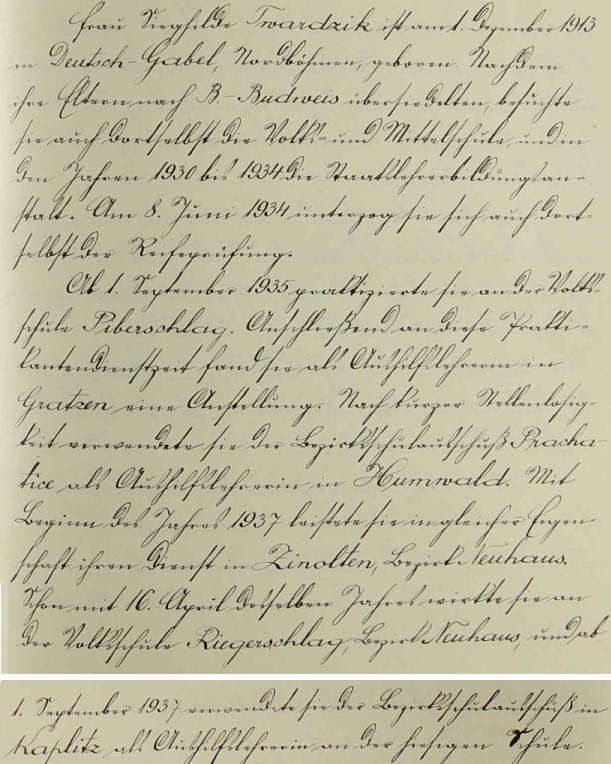 Frau Sieghilde Twardzik ist am 1. Dezember 1913
in Deutsch-Gabel, Nordböhmen, geboren. Nachdem
ihre Eltern nach B.-Budweis übersiedelten, besuchte
sie auch dortselbst die Volks- und Mittelschule, und in
den Jahren 1930 bis 1934 die Staatslehrerbildungsan-
stalt. Am 8. Juni 1934 unterzog sie sich auch dort-
selbst der Reifeprüfung.
Ab 1. September 1935 praktizierte sie an der Volks-
schule Piberschlag. Anschließend an diese Prakti-
kantendienstzeit fand sie als Aushilfslehrerin in
Gratzen eine Anstellung. Nach kurzer Stellenlosig-
keit verwendete sie der Bezirksschulausschuß Pracha-
tice als Aushilfslehrerin in Humwald. Mit
Beginn des Jahres 1937 leistete sie in gleicher Eigen-
schaft ihren Dienst in Zinolten, Bezirk Neuhaus.
Schon mit 16. April desselben Jahres wirkte sie an
der Volksschule Riegerschlag, Bezirk Neuhaus, und ab
1. September 1937 verwendete sie der Bezirksschulausschuß in
Kaplitz als Aushilfslehrerin an der hiesigen Schule.